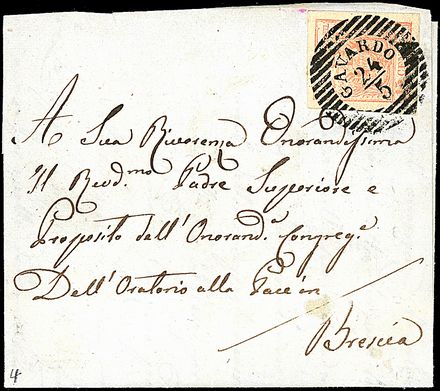 GAVARDO
24/5
A Sua Riverenza Onorandissima
Il Revd.mo Padre Superiore e
Proposito dell'Onorand.a Congreg.e
Dell'Oratorio alla Pace in
Brescia
4